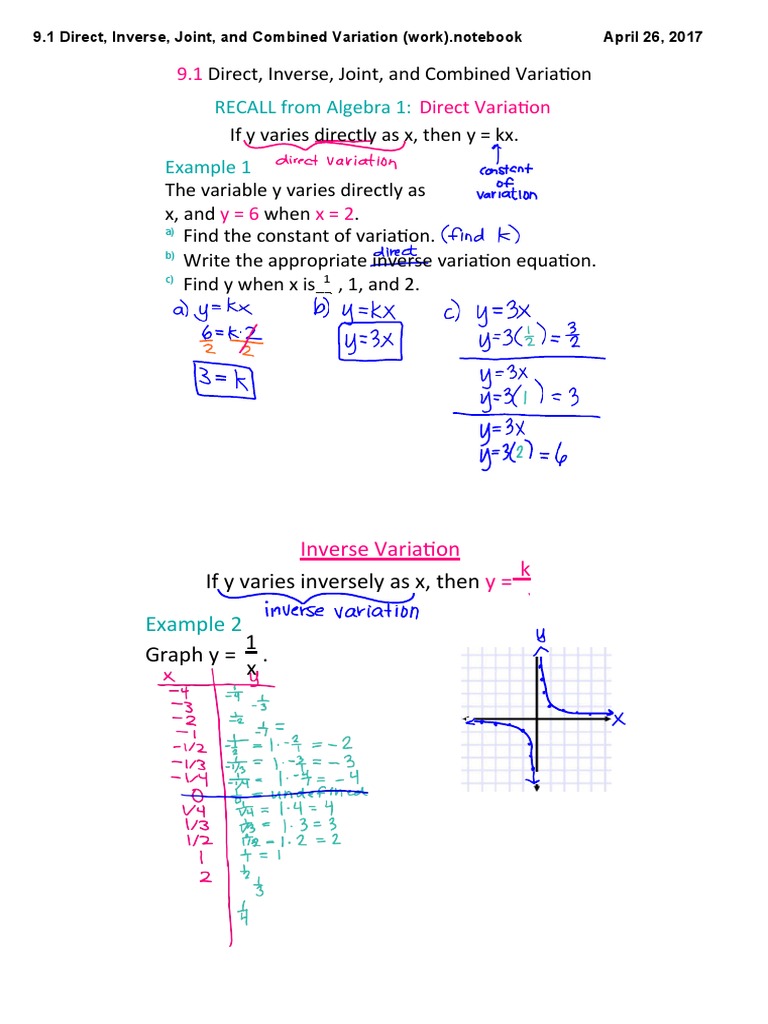 9.1 Direct, Inverse, Joint, and Combined Variation (work).notebook April 26, 2017
9.1 Direct, Inverse, Joint, and Combined Variation
RECALL from Algebra 1: Direct Variation
If y varies directly as x, then y = kx.
direct variation
constant
of
variation
Example 1
The variable y varies directly as
x, and y = 6 when x = 2.
a) Find the constant of variation. (find k)
direct
b) Write the appropriate inverse variation equation.
c) Find y when x is 1 , 1, and 2.
a) y = kx
6 = k·2
2 2
3 = k
b) y = kx
y = 3x
c) y = 3x
y = 3(1/2) = 3/2
y = 3x
y = 3(1) = 3
y = 3x
y = 3(2) = 6
Inverse Variation
If y varies inversely as x, then y = k
inverse variation
Example 2
Graph y = 1/x .
x y
-4 1/-4
-3 1/-3
-2 1/-2
-1
-1/2 = 1·-2/1 = -2
-1/3 = 1·-3/1 = -3
-1/4 = 1·-4/1 = -4
0 = undefined
1/4 = 1·4 = 4
1/3 = 1·3 = 3
1/2 1·2 = 2
1 = 1
2 1/2
1/3
1/4
y
x